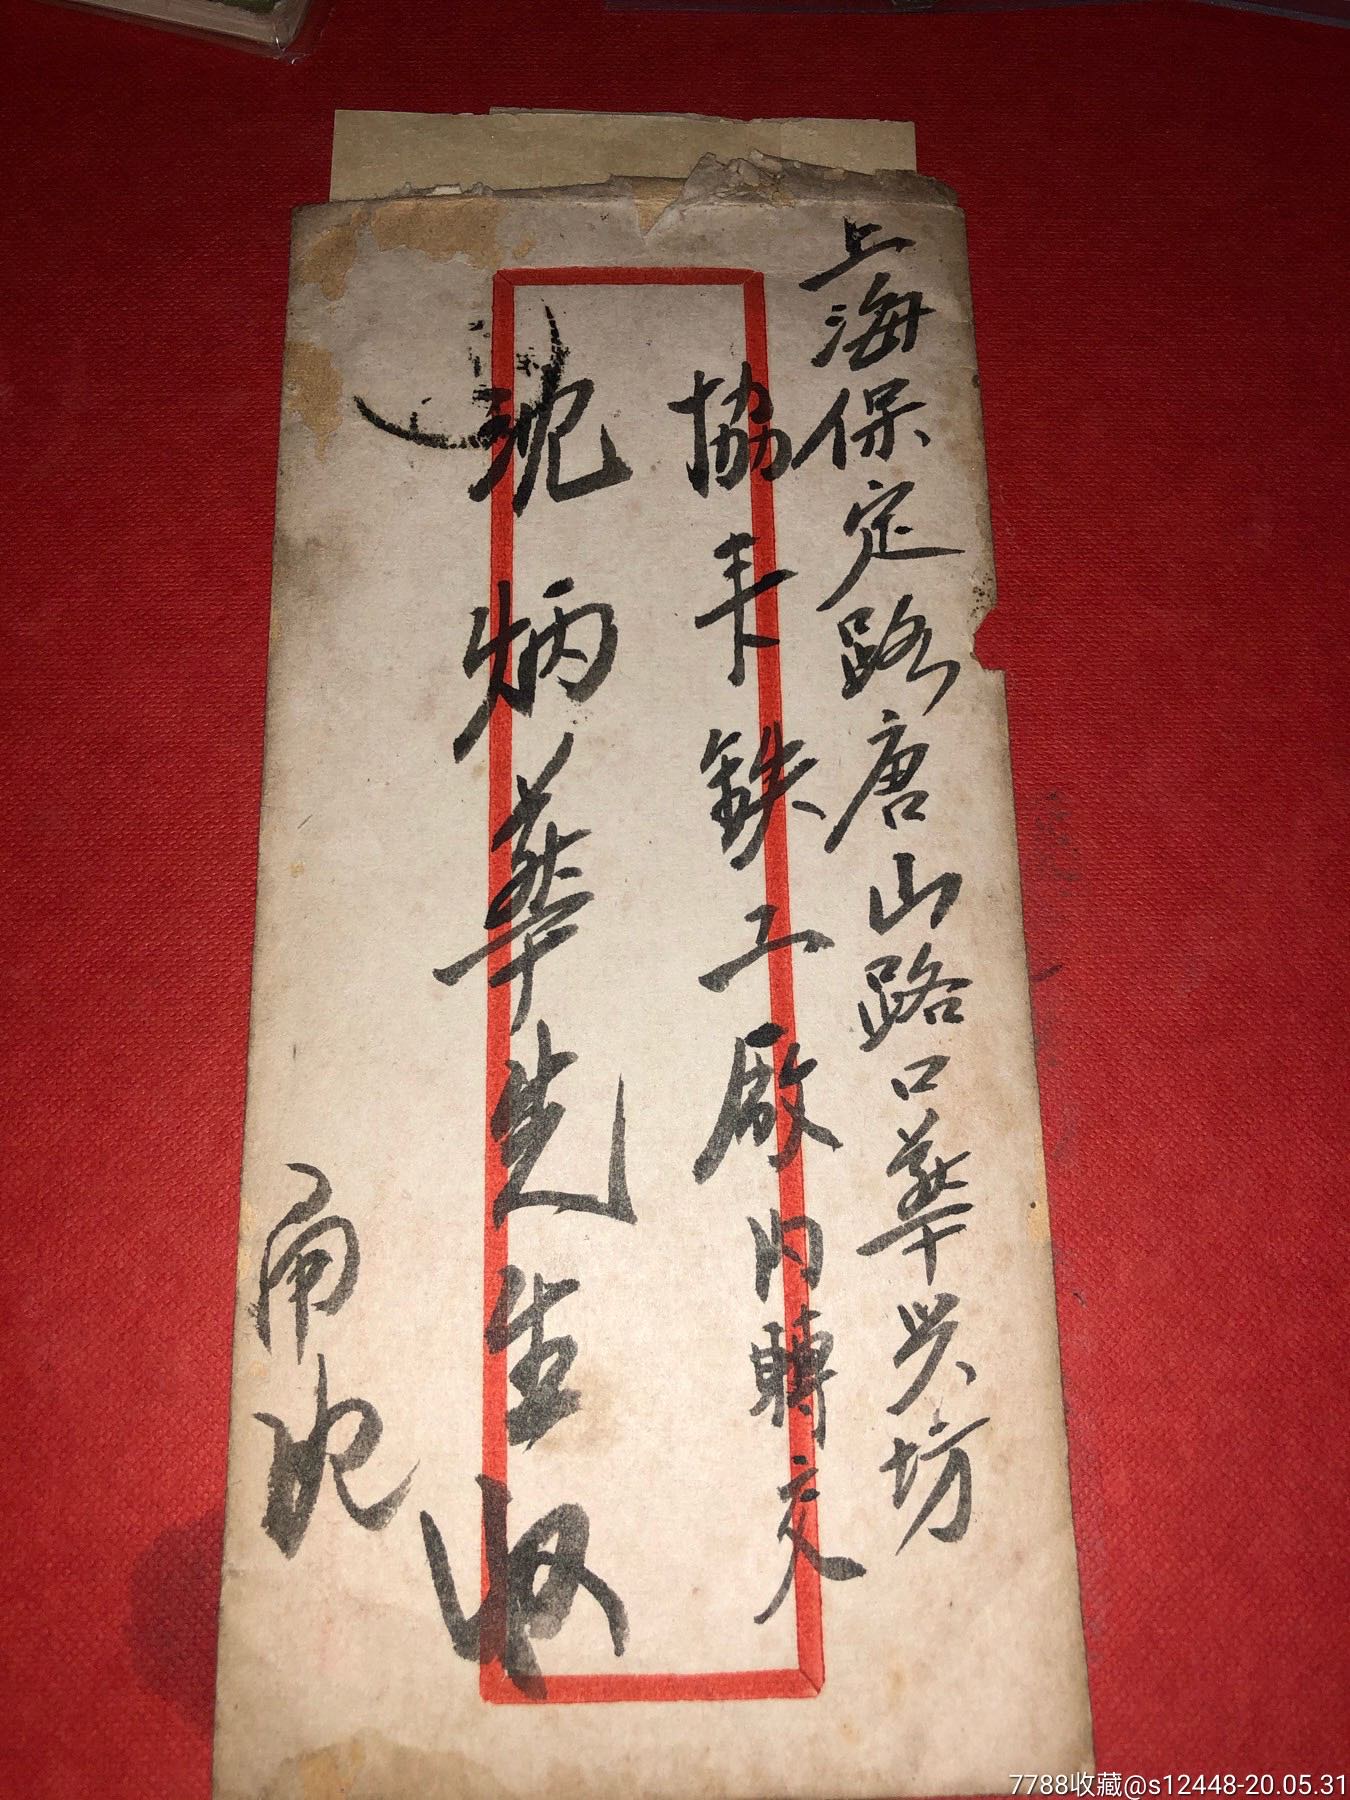 上海保定路唐山路口華兴坊
協丰鉄工廠内轉交
沈炳華先生收
甬沈
7788收藏@s12448-20.05.31